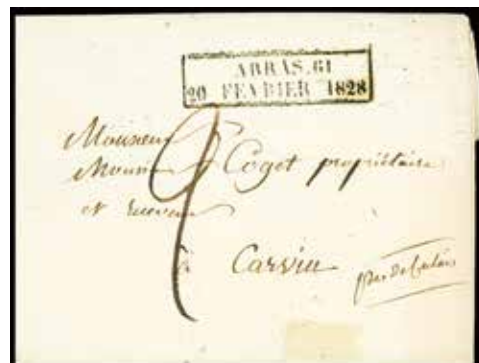 ARRAS.61
20 FEVRIER 1828
Monsieur
Monsieur Coget propriétaire
et receveur
à Carvin
pas de Calais